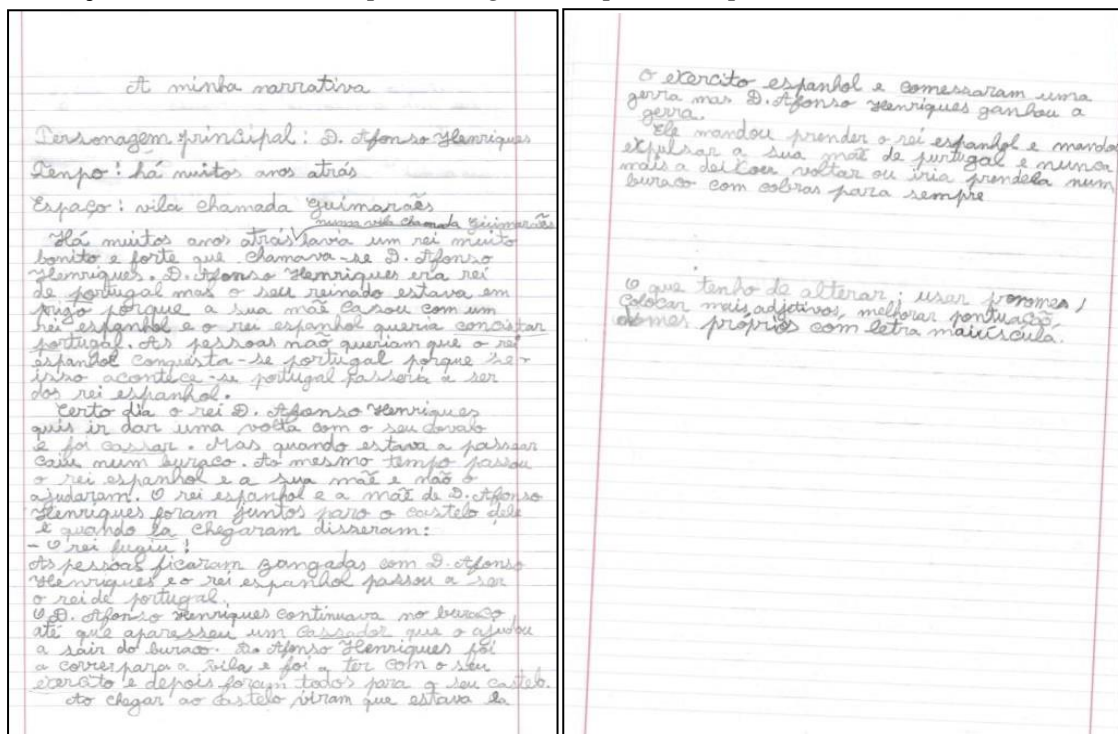 A minha narrativa
Personagem principal: D. Afonso Henriques
Tenpo: há muitos anos atrás
Espaço: vila chamada Guimarães
numa vila chamada Guimarães
Há muitos anos atrás havia um rei muito
bonito e forte que chamava-se D. Afonso
Henriques. D. Afonso Henriques era rei
de portugal mas o seu reinado estava em
prigo porque a sua mãe casou com um
rei espanhol e o rei espanhol queria concistar
portugal. As pessoas não queriam que o rei
espanhol conquista-se portugal porque se
isso acontece-se portugal passaria a ser
dos rei espanhol.
Certo dia o rei D. Afonso Henriques
quis ir dar uma volta com o seu cavalo
e foi cassar. Mas quando estava a passear
caiu num buraco. Ao mesmo tempo passou
o rei espanhol e a sua mãe e não o
ajudaram. O rei espanhol e a mãe de D. Afonso
Henriques foram juntos para o castelo dele
e quando la chegaram disseram:
- O rei fugiu!
As pessoas ficaram zangadas com D. Afonso
Henriques e o rei espanhol passou a ser
o rei de portugal.
O D. Afonso Henriques continuava no buraco
até que aparesseu um cassador que o ajudou
a sair do buraco. D. Afonso Henriques foi
a correr para a vila e foi a ter com o seu
exercito e depois foram todos para o seu castelo.
Ao chegar ao castelo viram que estava la
o exercito espanhol e comessaram uma
gerra mas D. Afonso Henriques ganhou a
gerra.
Ele mandou prender o rei espanhol e mandou
expulsar a sua mãe de purtugal e nunca
mais a deicou voltar ou iria prendela num
buraco com cobras para sempre
O que tenho de alterar: usar pronomes,
colocar mais adjetivos, melhorar pontuação,
nomes próprios com letra maiúscula.